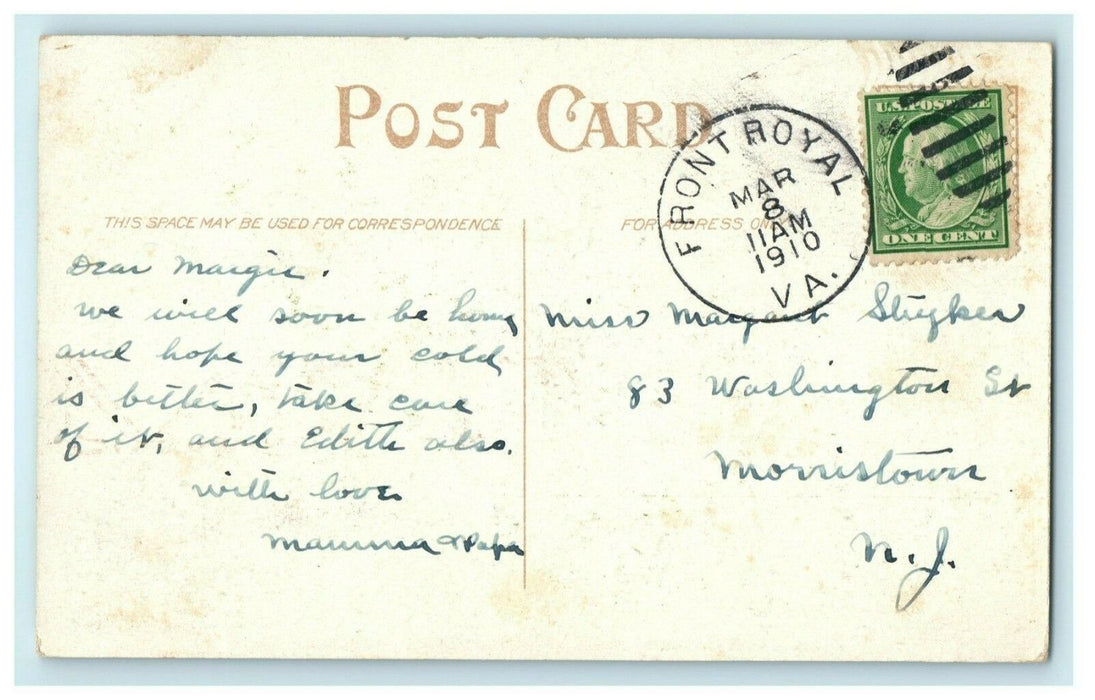 POST CARD
THIS SPACE MAY BE USED FOR CORRESPONDENCE
Dear Margie.
we will soon be home
and hope your cold
is better, take care
of it, and Edith also.
with love
Mamma & Papa
FOR ADDRESS ONLY
FRONT ROYAL
MAR
8
11AM
1910
VA.
U.S. POSTAGE
ONE CENT
Miss Margaret Stryker
83 Washington St
Morristown
N.J.